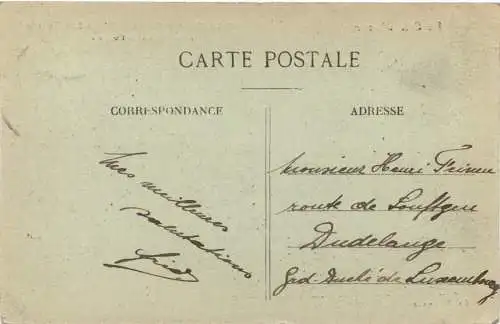 CARTE POSTALE
CORRESPONDANCE
mes meilleures
salutations
ADRESSE
Monsieur Henri
route de
Dudelange
Grd-Duché de Luxembourg